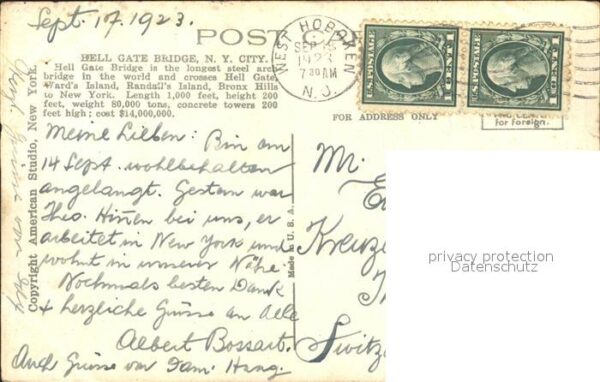 Sept. 17. 1923.
POST
WEST HOBOKEN
SEP
1923
7 30 AM
N.J.
U.S. POSTAGE
1 CENT 1
U.S. POSTAGE
1 CENT 1
HELL GATE BRIDGE, N. Y. CITY.
Hell Gate Bridge is the longest steel arc
bridge in the world and crosses Hell Gate,
Ward's Island, Randall's Island, Bronx Hills
to New York. Length 1,000 feet, height 200
feet, weight 80,000 tons, concrete towers 200
feet high; cost $14,000,000.
FOR ADDRESS ONLY
for Foreign.
Meine Lieben: Bin am
14 Sept. wohlbehalten
angelangt. Gestern war
Theo. bei uns, er
arbeitet in New York und
wohnt in unserer Nähe.
Nochmals besten Dank
+ herzliche Grüsse an Alle
Albert Bossart.
Auch Grüsse von
Copyright American Studio, New York.
Made in U.S.A.
Mr.
Switz
privacy protection
Datenschutz